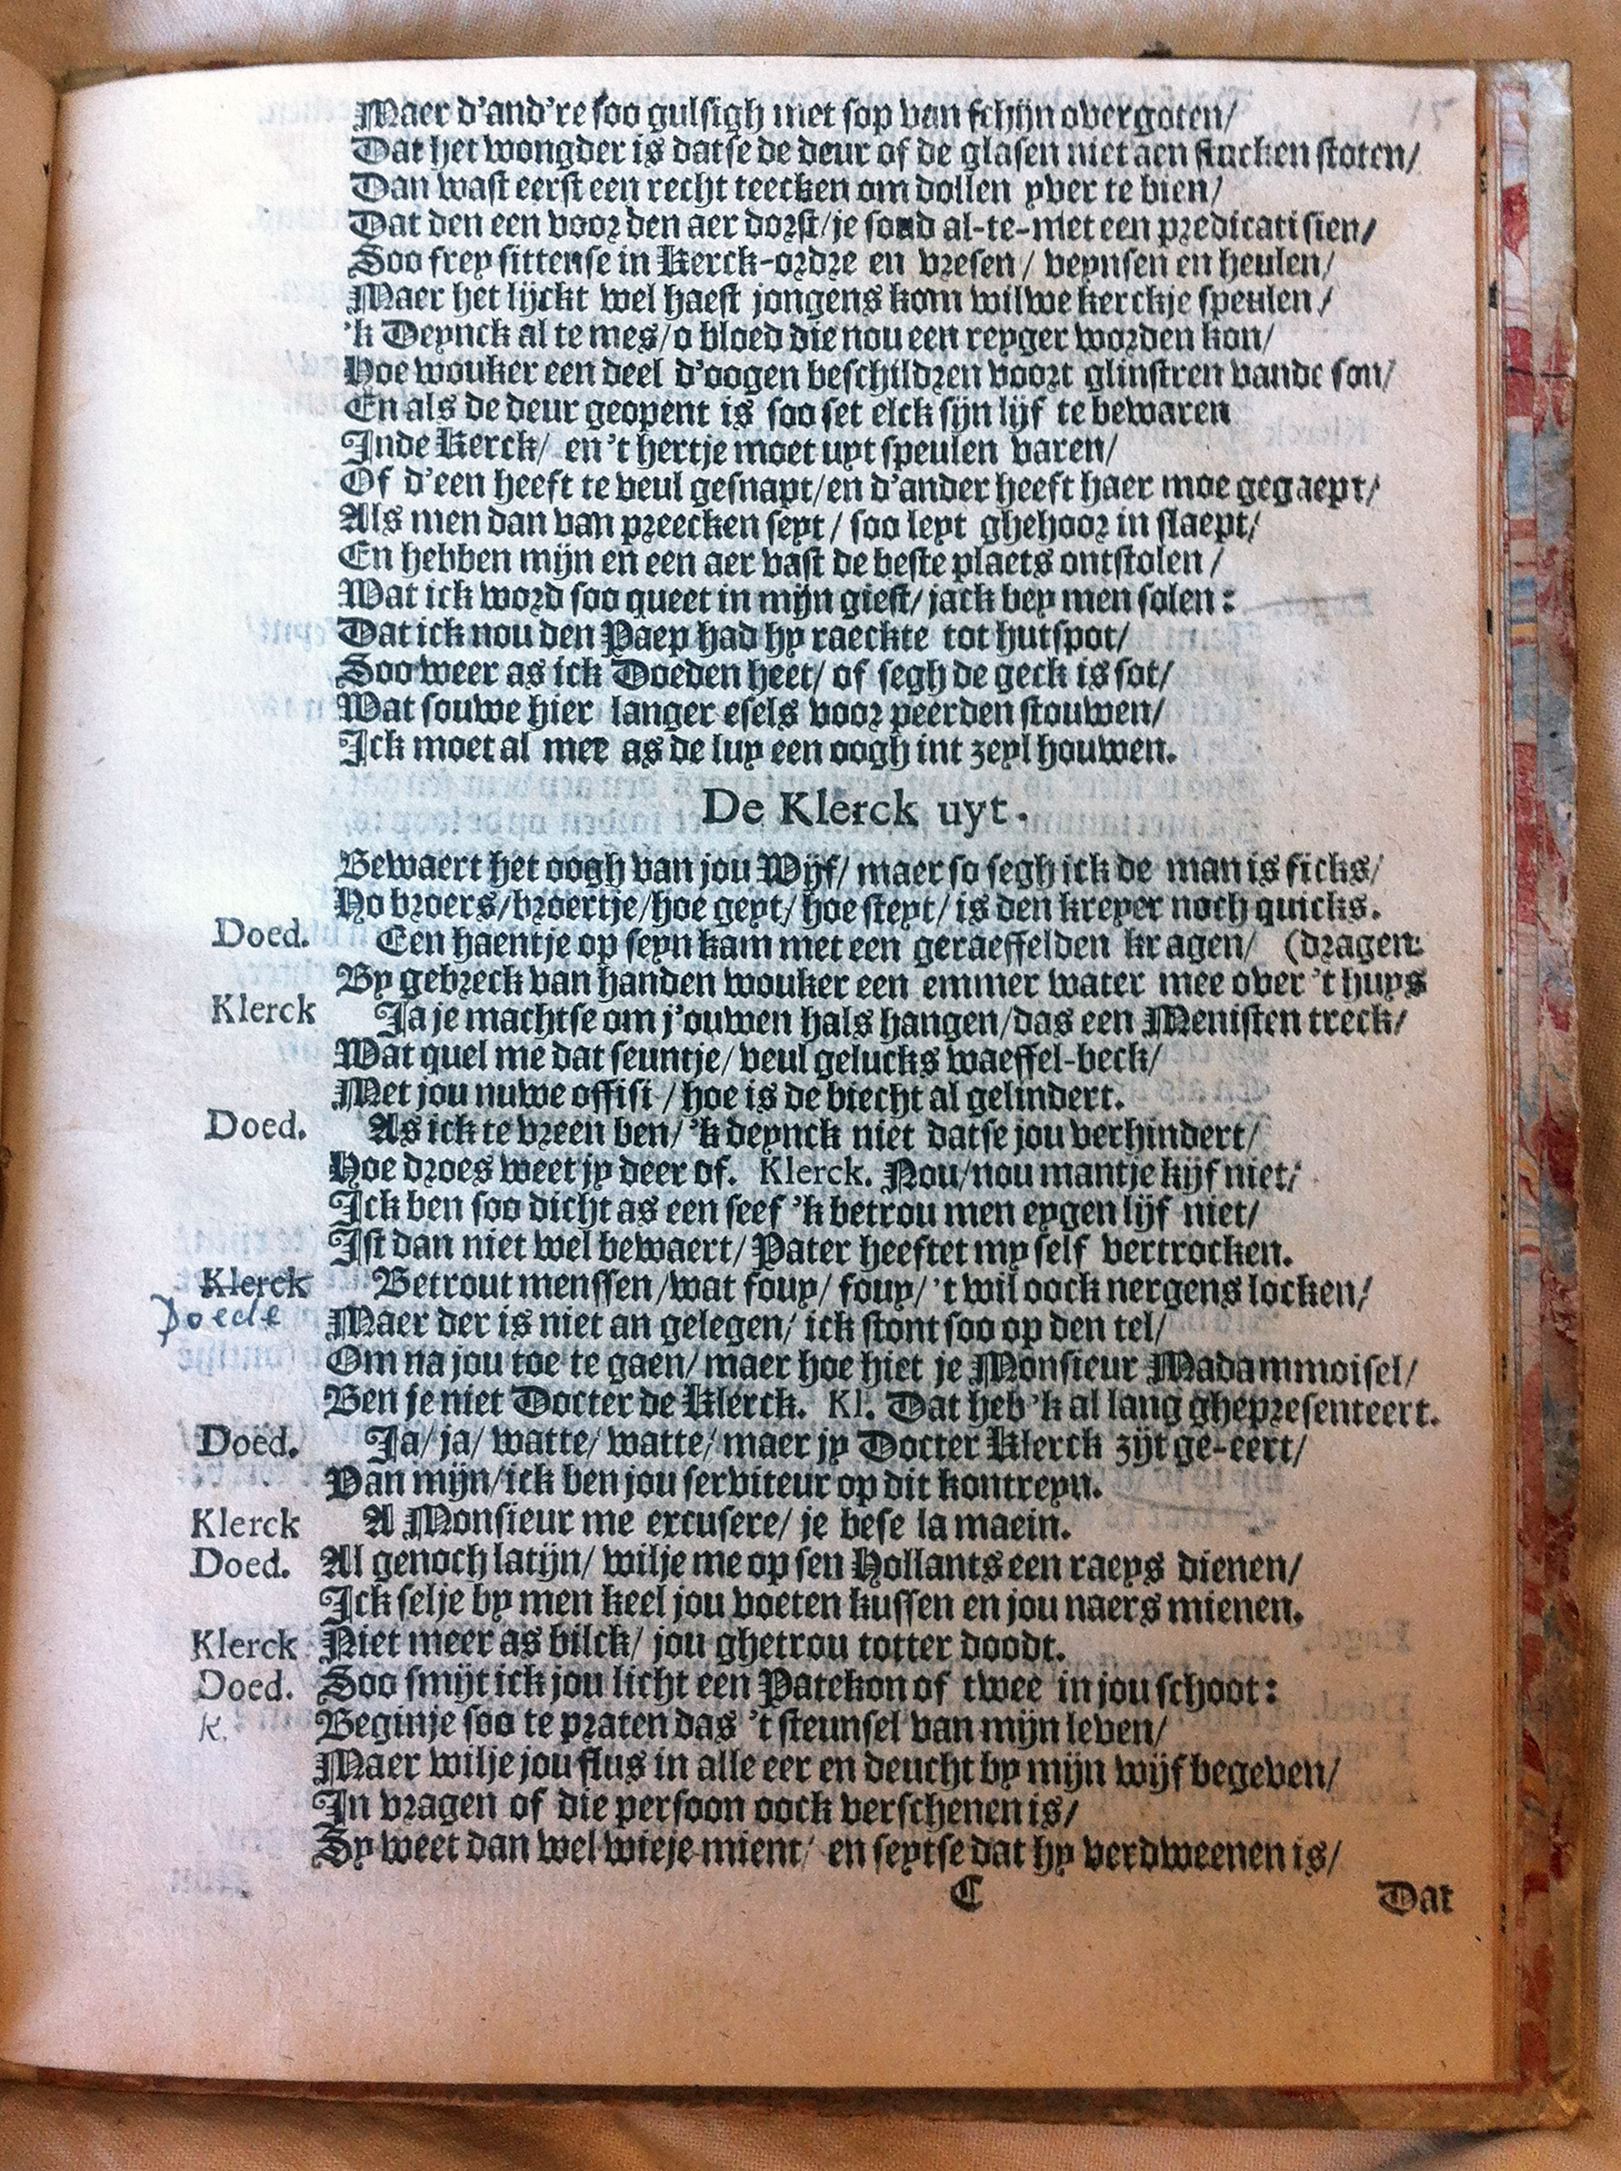 17
Maer d'and're soo gulsigh met sop van schijn overgoten/
Dat het wongder is datse de deur of de glasen niet aen stucken stoten/
Dan wast eerst een recht teecken om dollen yver te bien/
Dat den een voor den aer dorst/je soud al-te-met een predicati sien/
Soo frey sittense in Kerck-ordre en vresen/ veynsen en heulen/
Maer het lijckt wel haest jongens kom wilwe kerckje speulen/
'k Deynck al te mes/o bloed die nou een reyger worden kon/
Hoe wouker een deel d'oogen beschildren voort glinstren vande son/
En als de deur geopent is soo set elck sijn lijf te bewaren
Inde Kerck/ en 't hertje moet uyt speulen varen/
Of d'een heeft te veul gesnapt/en d'ander heeft haer moe gegaept/
Als men dan van preecken seyt/ soo leyt ghehoor in slaept/
En hebben mijn en een aer vast de beste plaets ontstolen/
Wat ick word soo queet in mijn giest/jack bey men solen:
Dat ick nou den Paep had hy raeckte tot hutspot/
Soo weer as ick Doeden heet/ of segh de geck is sot/
Wat souwe hier langer esels voor peerden stouwen/
Ick moet al mee as de luy een oogh int zeyl houwen.
De Klerck uyt.
Bewaert het oogh van jou Wijf/ maer so segh ick de man is ficks/
Ho broers/broertje/hoe geyt/hoe steyt/is den kreyer noch quicks.
Doed. Een haentje op seyn kam met een geraeffelden kragen/ (dragen:
By gebreck van handen wouker een emmer water mee over 't huys
Klerck Ja je machtse om j'ouwen hals hangen/das een Menisten treck/
Wat quel me dat seuntje/veul gelucks waeffel-beck/
Met jou nuwe offisi/ hoe is de biecht al gelindert.
Doed. As ick te vreen ben/'k deynck niet datse jou verhindert/
Hoe droes weet jy deer of. Klerck. Nou/nou mantje kijf niet/
Ick ben soo dicht as een seef 'k betrou men eygen lijf niet/
Ist dan niet wel bewaert/Pater heeftet my self vertrocken.
Klerck Betrout menssen/wat fouy/ fouy/ 't wil oock nergens locken/
Doede Maer der is niet an gelegen/ ick stont soo op den tel/
Om na jou toe te gaen/maer hoe hiet je Monsieur Madammoisel/
Ben je niet Docter de Klerck. Kl. Dat heb 'k al lang ghepresenteert.
Doed. Ja/ja/ watte/watte/maer jy Docter Klerck zijt ge-eert/
Van mijn/ick ben jou serviteur op dit kontreyn.
Klerck A Monsieur me excusere/ je bese la maein.
Doed. Al genoch latijn/ wilje me op sen Hollants een raeys dienen/
Ick selje by men keel jou voeten kussen en jou naers mienen.
Klerck Niet meer as bilck/ jou ghetrou totter doodt.
Doed. Soo smijt ick jou licht een Patekon of twee in jou schoot:
K. Beginje soo te praten das 't steunsel van mijn leven/
Maer wilje jou flus in alle eer en deucht by mijn wijf begeven/
In vragen of die persoon oock verschenen is/
Sy weet dan wel wieje mient/ en seytse dat hy verdweenen is/
C Dat